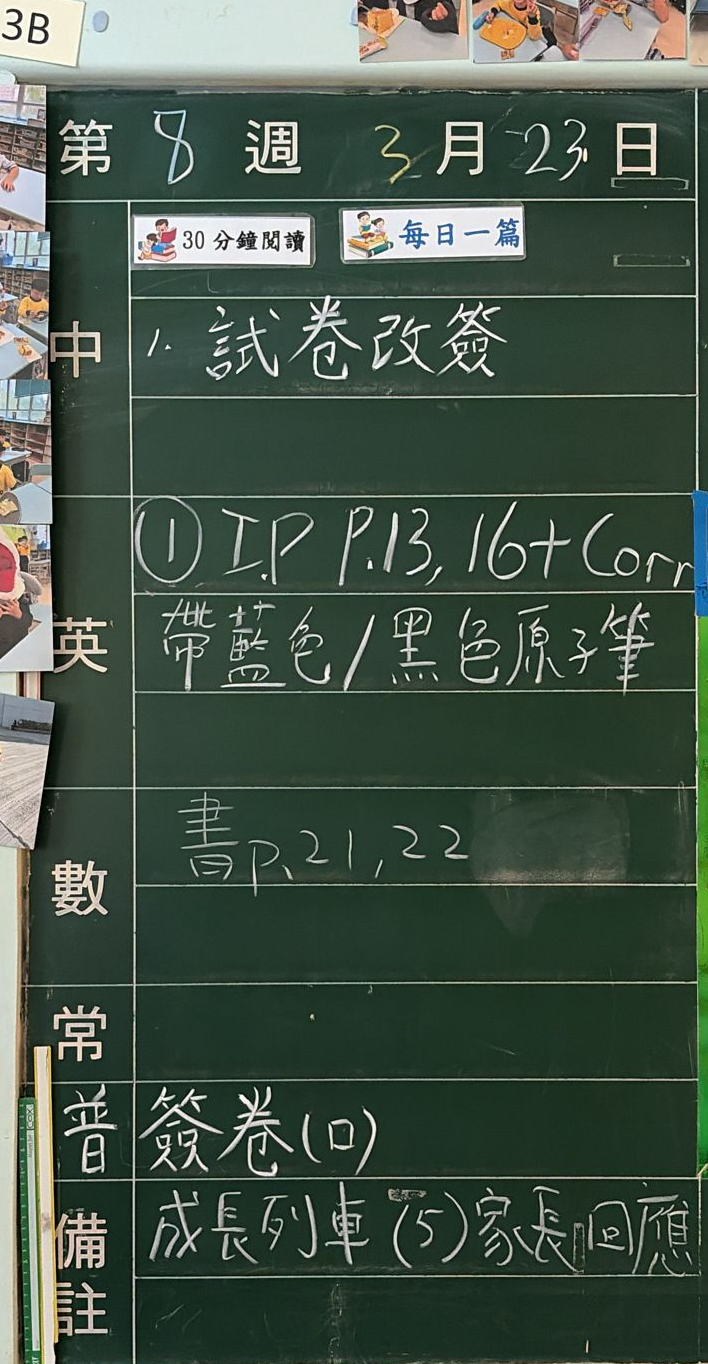 3B
第 8 週 3 月 23 日
30 分鐘閱讀 每日一篇
中 1. 試卷改簽
英 ① I.P P.13, 16+Corr
帶藍色/黑色原子筆
數 書P.21,22
常
普 簽卷(口)
備註 成長列車 (5)家長回應